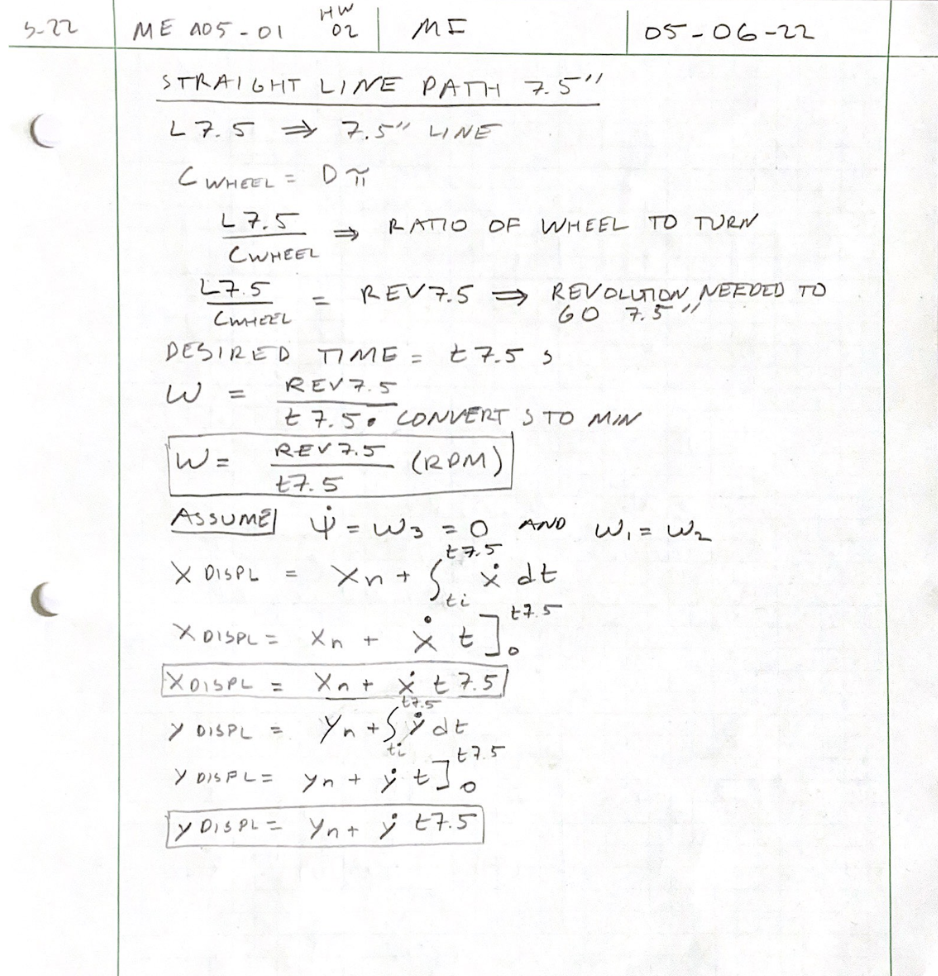 S-22 ME 405-01 HW 02 MI 05-06-22
STRAIGHT LINE PATH 7.5"
L7.5 ⇒ 7.5" LINE
C WHEEL = Dπ
L7.5 / CWHEEL ⇒ RATIO OF WHEEL TO TURN
L7.5 / CWHEEL = REV7.5 ⇒ REVOLUTION NEEDED TO
GO 7.5"
DESIRED TIME = t7.5 s
W = REV7.5 / t7.5 • CONVERT S TO MIN
W = REV7.5 / t7.5 (RPM)
ASSUME ψ̇ = W3 = 0 AND W1 = W2
X DISPL = Xn + ∫ti^t7.5 ẋ dt
X DISPL = Xn + ẋ t]0^t7.5
X DISPL = Xn + ẋ t7.5
Y DISPL = Yn + ∫ti^t7.5 ẏ dt
Y DISPL = Yn + ẏ t]0^t7.5
Y DISPL = Yn + ẏ t7.5